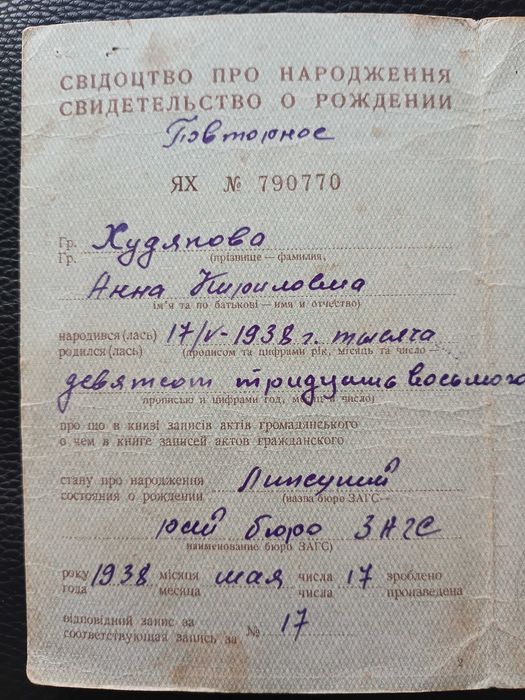 СВІДОЦТВО ПРО НАРОДЖЕННЯ
СВИДЕТЕЛЬСТВО О РОЖДЕНИИ
Повторное
ЯХ № 790770
Гр. Худякова
Гр. (прізвище – фамилия,
Анна Кириловма
ім'я та по батькові – имя и отчество)
народився (лась) 17/V-1938 г. тысяча
родился (лась) (прописом та цифрами рік, місяць та число –
девятсот тридцать восьмого
прописью и цифрами год, месяц и число)
про що в книзі записів актів громадянського
о чем в книге записей актов гражданского
стану про народження
состояния о рождении (назва бюро ЗАГС –
рай бюро ЗАГС
наименование бюро ЗАГС)
року 1938 місяця мая числа 17 зроблено
года месяца числа произведена
відповідний запис за
соответствующая запись за № 17
2